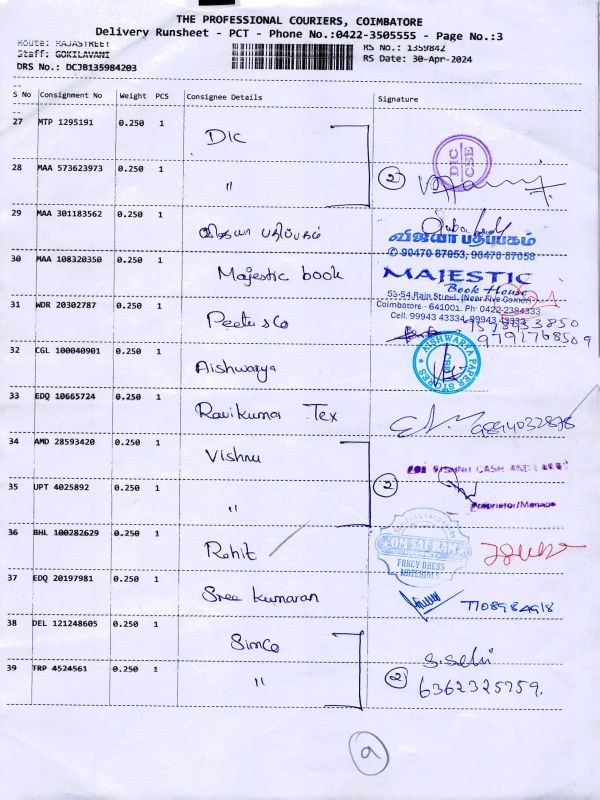 THE PROFESSIONAL COURIERS, COIMBATORE
Delivery Runsheet - PCT - Phone No.:0422-3505555 - Page No.:3
Route: RAJASTREET
Staff: GOKILAVANI
DRS No.: DCJB135984203
RS No.: 1359842
RS Date: 30-Apr-2024
S No Consignment No Weight PCS Consignee Details Signature
27 MTP 1295191 0.250 1 DIC
DIC CSE
28 MAA 573623973 0.250 1 "
2
29 MAA 301183562 0.250 1 விஜயா பதிப்பகம்
விஜயா பதிப்பகம்
✆ 90470 87053, 90470 87058
30 MAA 108320350 0.250 1 Majestic book
MAJESTIC
Book House
53-54 Raja Street, (Near Five Corner)
Coimbatore - 641001. Ph: 0422-2384333
Cell. 99943 43334, 99943 43333
31 WDR 20302787 0.250 1 Peetu s Co
9578933850
9791768509
32 CGL 100040901 0.250 1 Aishwarya
AISHWARYA PAPER STORES
CBE
33 EDQ 10665724 0.250 1 Ravikumar Tex
9894032878
34 AMD 28593420 0.250 1 Vishnu
VISHNU CASH AND
35 UPT 4025892 0.250 1 "
2
Proprietor/Manager
36 BHL 100282629 0.250 1 Rohit
OM SAI RAM
FANCY DRESS
MATERIALS
37 EDQ 20197981 0.250 1 Sree Kumaran
7708984918
38 DEL 121248605 0.250 1 Simco
S. Selvi
39 TRP 4524561 0.250 1 "
2
6362325759.
9